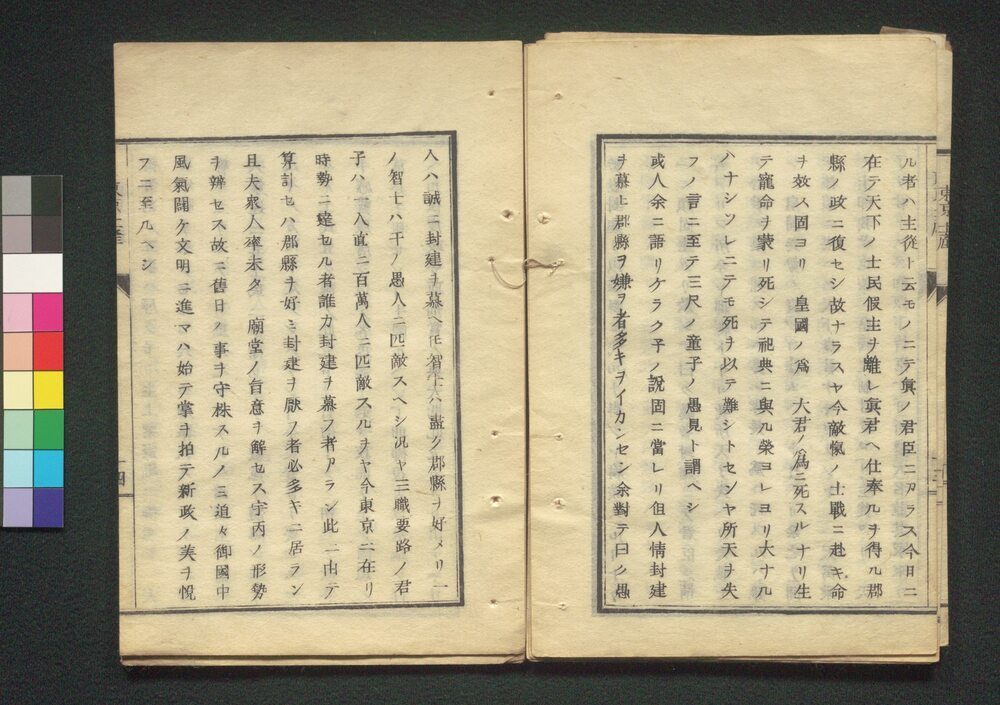 ル者ハ主從ト云モノニテ眞ノ君臣ニアラス今日ニ
在テ天下ノ士民假主ヲ離レ眞君ヘ仕奉ルヲ得ル郡
縣ノ政ニ復セシ故ナラスヤ今敵愾ノ士戰ニ赴キ命
ヲ效ス固ヨリ 皇國ノ爲 大君ノ爲ニ死スルナリ生
テ寵命ヲ蒙リ死シテ祀典ニ與ル榮ヨレヨリ大ナル
ハナシソレニテモ死ヲ以テ難シトセンヤ所天ヲ失
フノ言ニ至テ三尺ノ童子ノ愚見ト謂ヘシ
或人余ニ語リケラク子ノ説固ニ當レリ但人情封建
ヲ慕ヒ郡縣ヲ嫌ヲ者多キヲイカンセン余對テ曰ク愚
人ハ誠ニ封建ヲ慕ヘ𪜈智士ハ盡ク郡縣ヲ好メリ一
ノ智士ハ千ノ愚人ニ匹敵スヘシ况ヤ三職要路ノ君
子ハ一人直ニ百萬人ニ匹敵スルヲヤ今東京ニ在リ
時勢ニ達セル者誰カ封建ヲ慕フ者アラン此ニ由テ
算計セハ郡縣ヲ好ミ封建ヲ厭フ者必多キニ居ラン
且夫衆人率未タ 廟堂ノ旨意ヲ解セス宇内ノ形勢
ヲ辨セス故ニ舊日ノ事ヲ守株スルノミ追々御國中
風氣闢ケ文明ニ進マハ始テ掌ヲ拍テ新政ノ美ヲ悅
フニ至ルヘシ